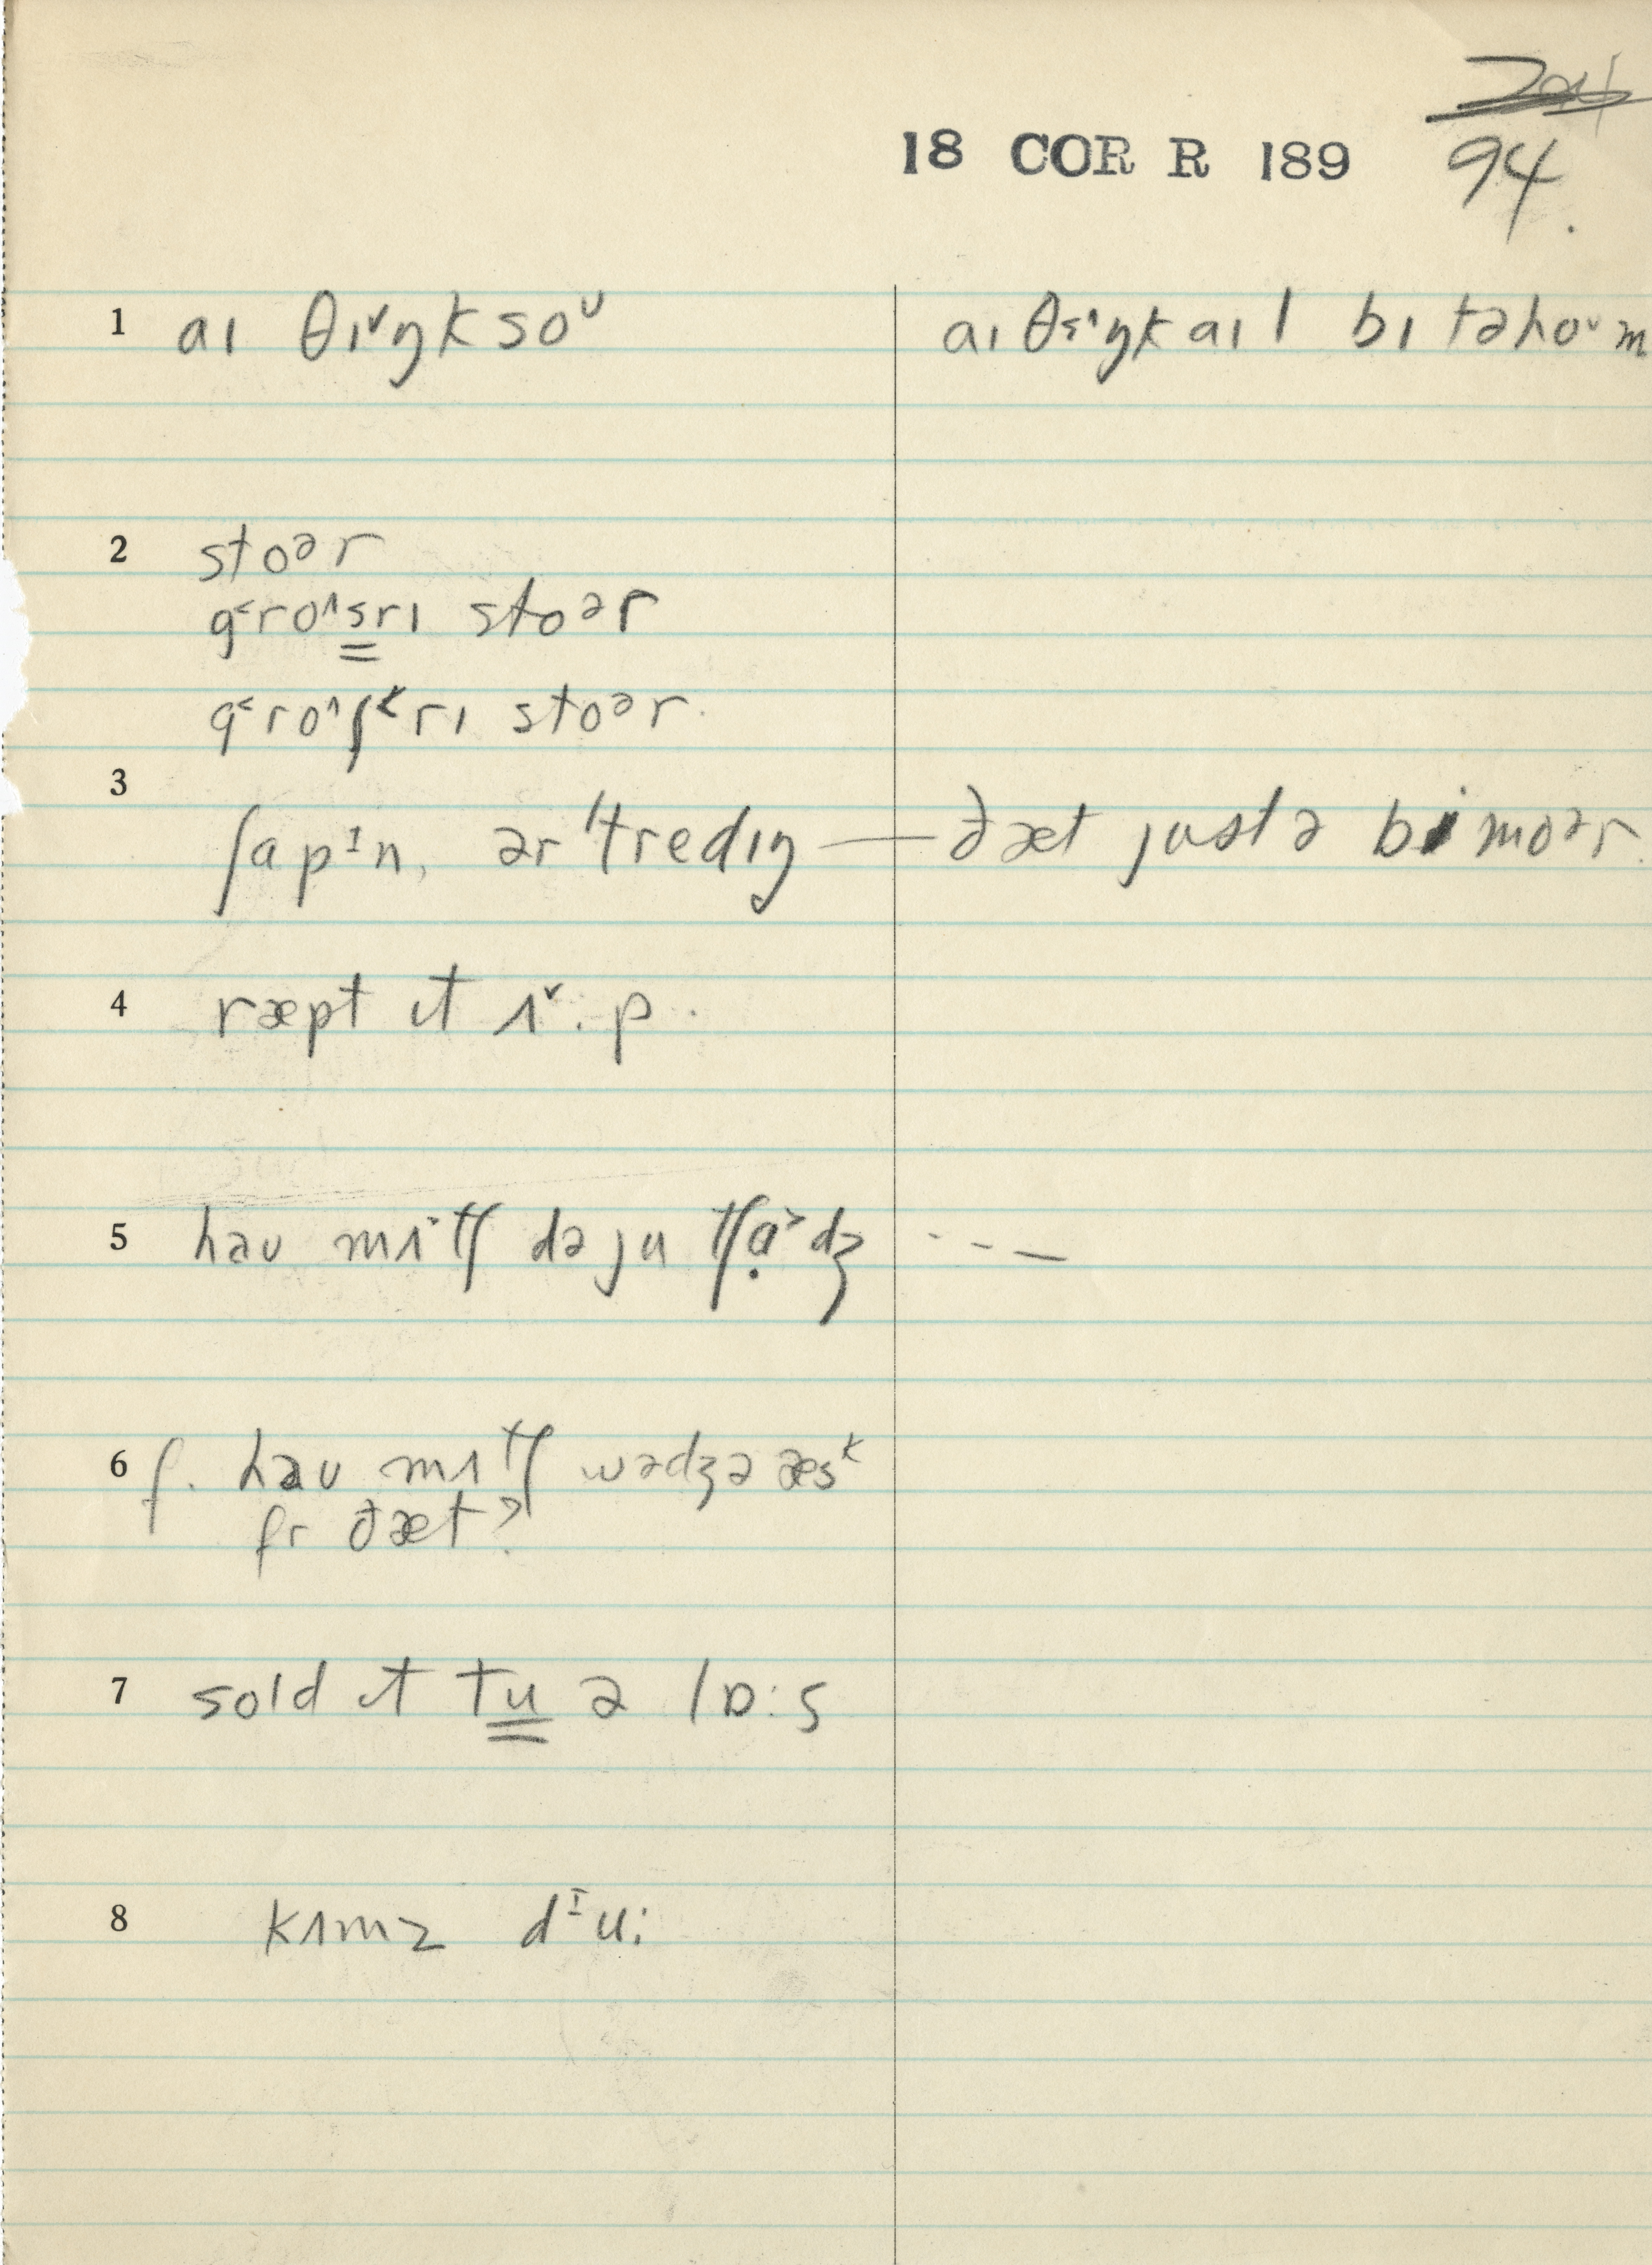 ~~204~~
18 COR R 189 94.
1 aɪ θɪ˅ŋk soᶷ aɪ θɛ˄ŋk aɪl bɪ təhoᶷm
2 stoᵊr
g˂ro˄s̳rɪ stoᵊr
g˂ro˄ʃᵏrɪ stoᵊr.
3 ʃapᴵn, ər 'tredɪŋ — ðæt justə bi moᵊr.
4 ræpt ɪt ʌ˅·p.
5 haʊ mʌtʃ də ju tʃɑ˃dʒ - - —
6 f. haʊ mʌtʃ wədʒə æsᵏ
fr ðæt?
7 sold ɪt tu̳ ə lɒ:s
8 kʌmz dᴵu: